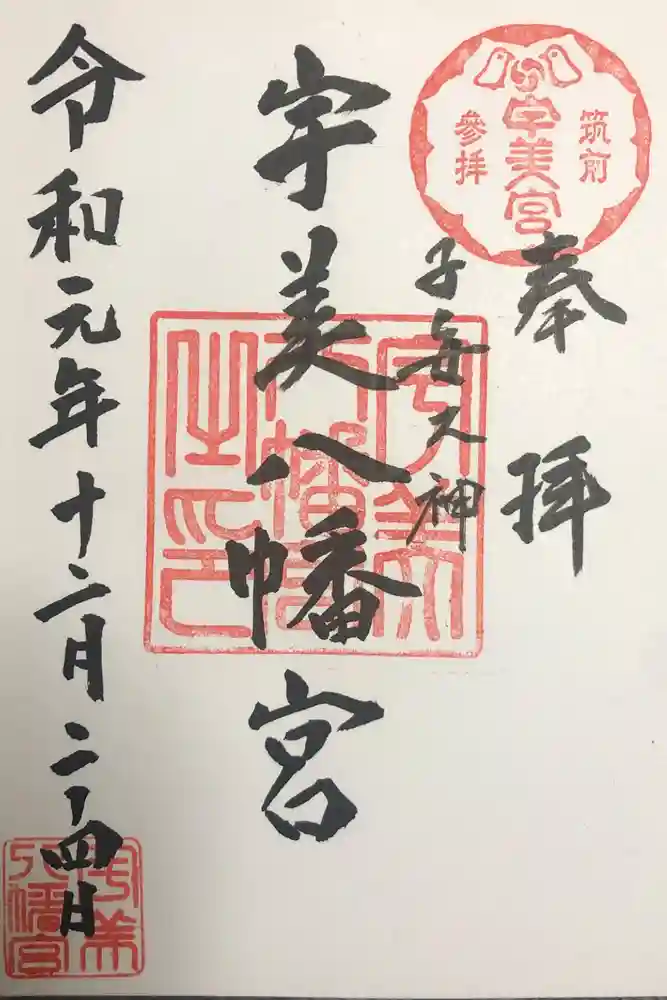 奉拝
筑前
宇美宮
参拝
子安大神
宇美八幡宮
宇美
八幡宮
之印
令和元年十二月二十四日
宇美
八幡宮